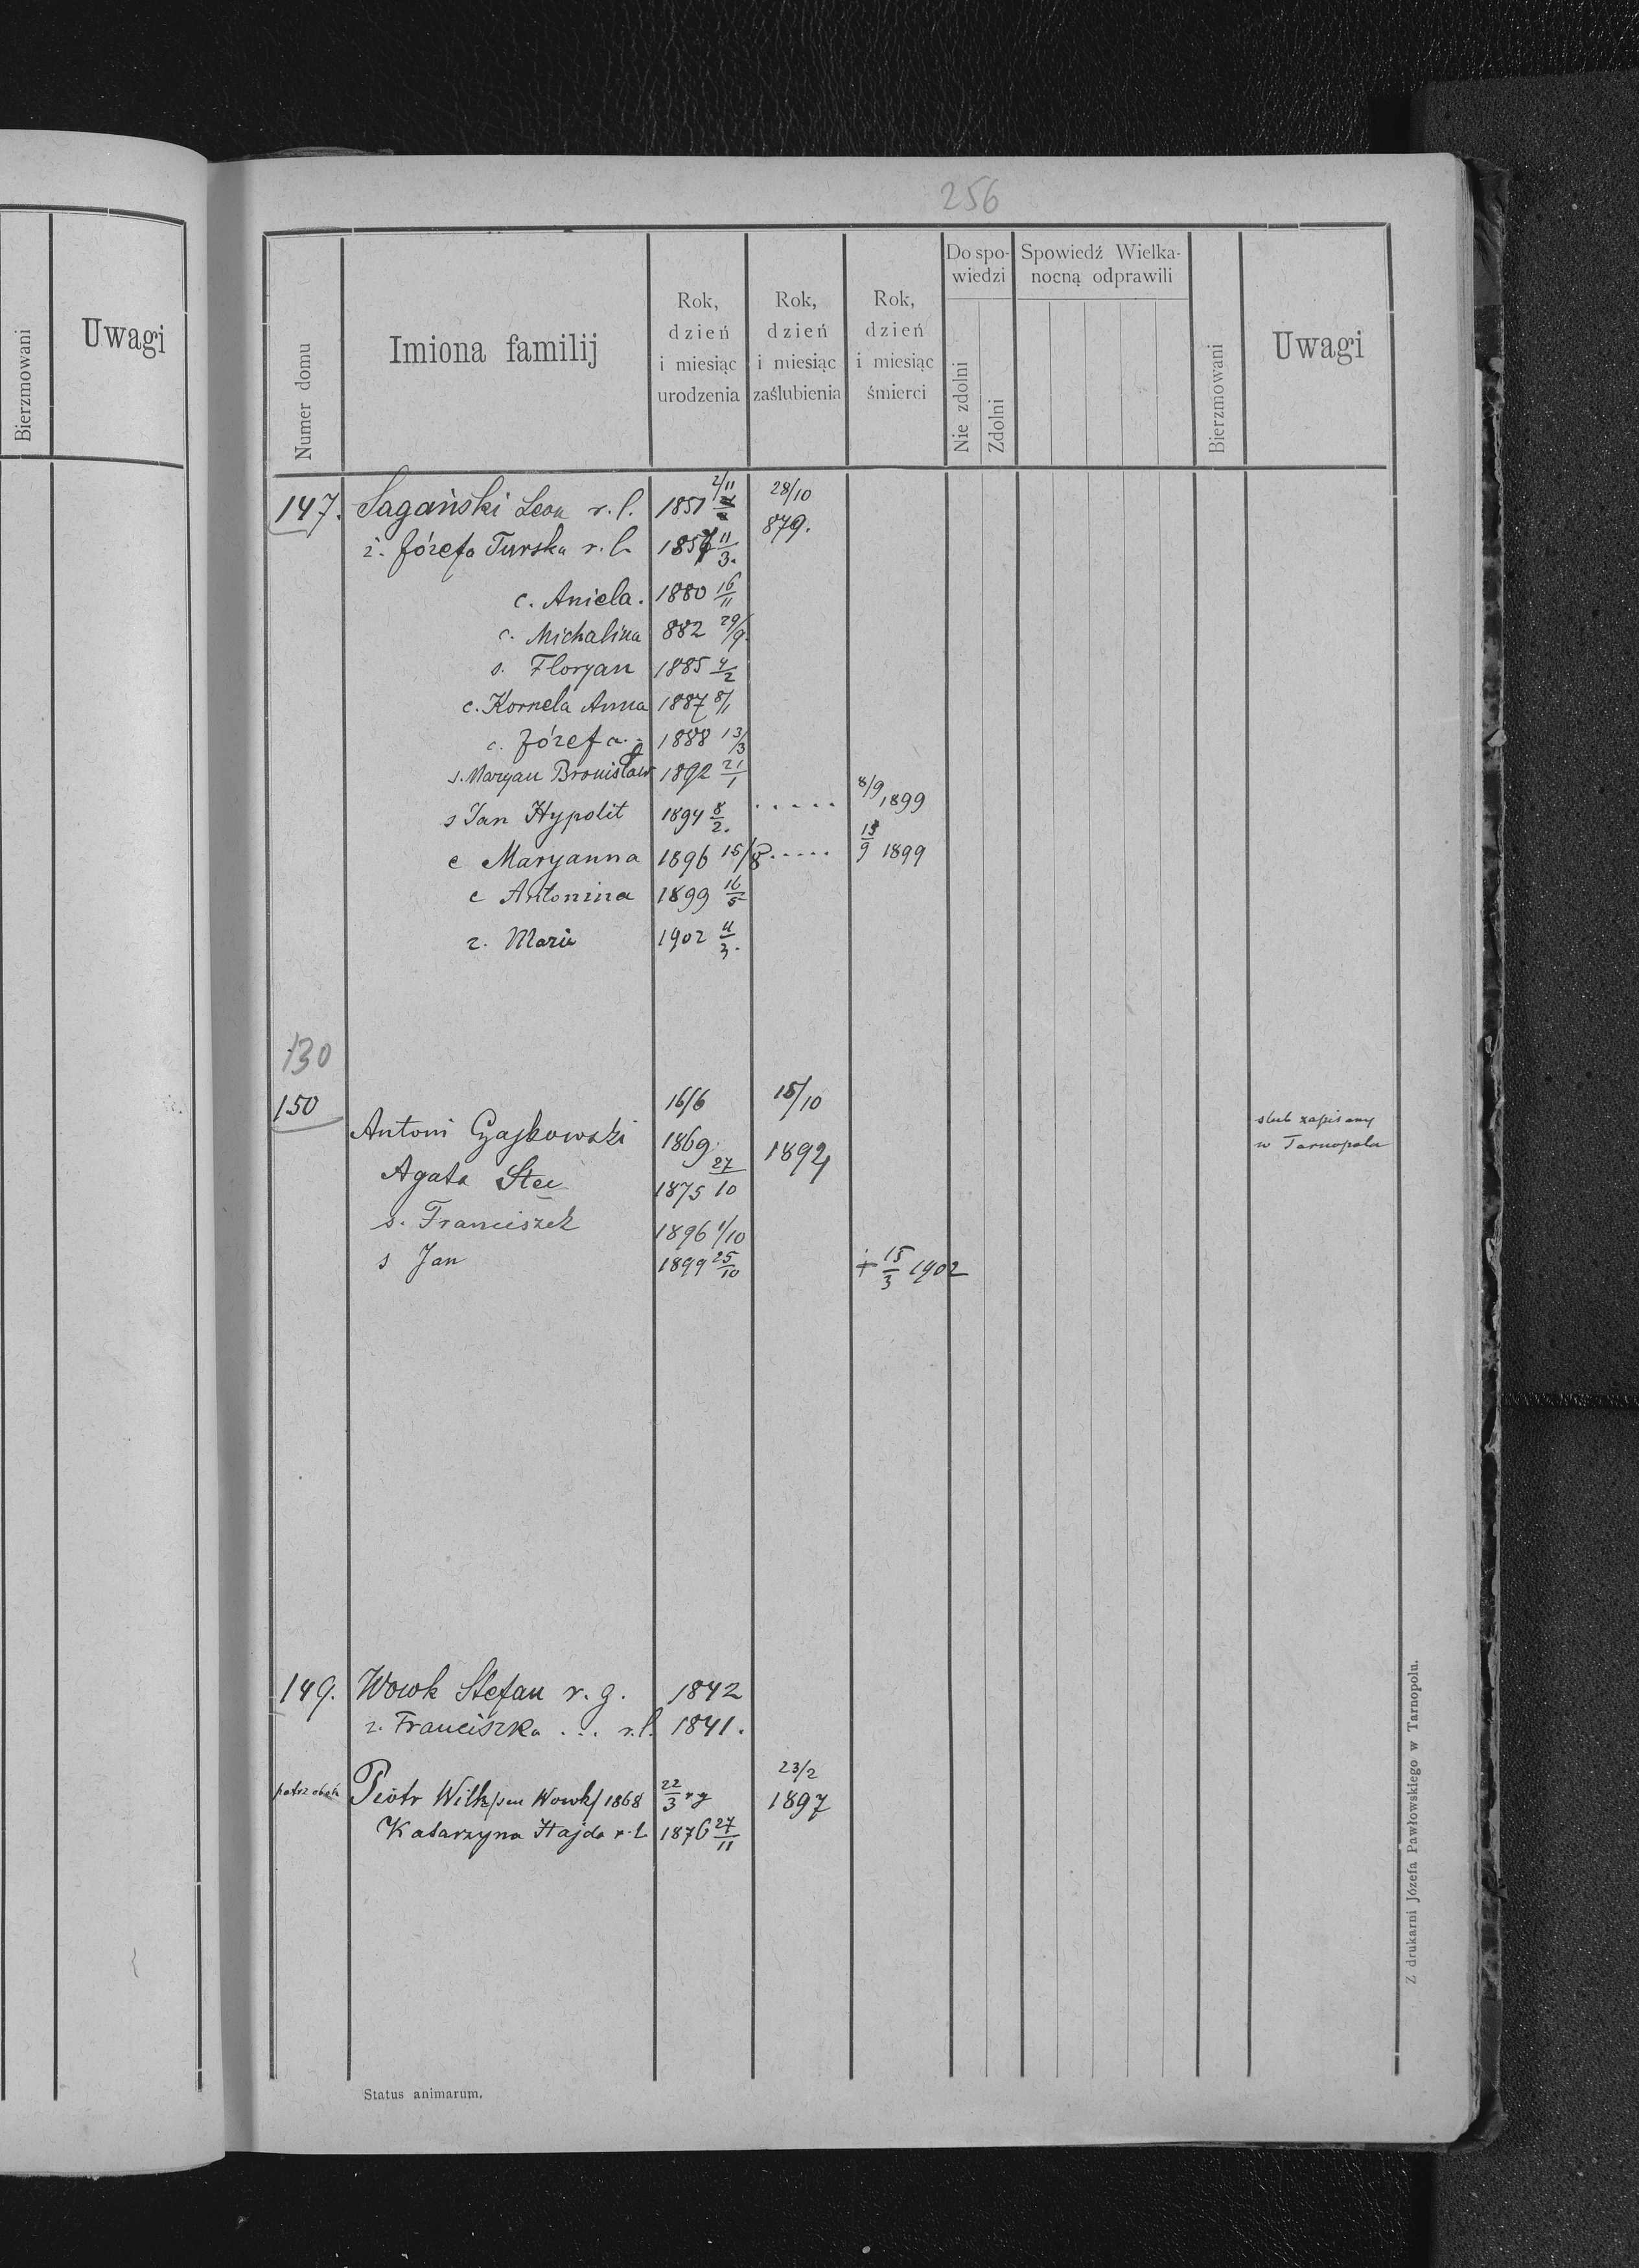 Bierzmowani
Uwagi
256
Numer domu
Imiona familij
Rok, dzień i miesiąc urodzenia
Rok, dzień i miesiąc zaślubienia
Rok, dzień i miesiąc śmierci
Do spo-
wiedzi
Nie zdolni
Zdolni
Spowiedź Wielka-
nocną odprawili
Bierzmowani
Uwagi
147. Sagański Leon r. l. 1851 2/11 28/10 879.
ż. Józefa Turska r. l. 1857 11/3.
c. Aniela. 1880 16/11
c. Michalina 882 29/9.
s. Floryan 1885 4/2
c. Kornela Anna 1887 8/1
c. Józefa 1888 13/3
s. Maryan Bronisław 1892 21/1
s Jan Hypolit 1894 8/2. ..... 8/9 1899
c Maryanna 1896 15/8 ..... 13/9 1899
c Antonina 1899 16/5
c. Maria 1902 11/3.
130
150
Antoni Czajkowski 16/6 1869. 15/10 1894 slub zapisany
w Tarnopolu
Agata Stec 1875 27/10
s. Franciszek 1896 1/10
s Jan 1899 25/10 + 15/3 1902
149. Wowk Stefan r. g. 1842
ż. Franciszka ... r. l. 1841.
patrz obok Piotr Wilk /seu Wowk/ 1868 22/3 r g 23/2 1897
Katarzyna Hajda r. l 1876 27/11
Status animarum.
Z drukarni Józefa Pawłowskiego w Tarnopolu.